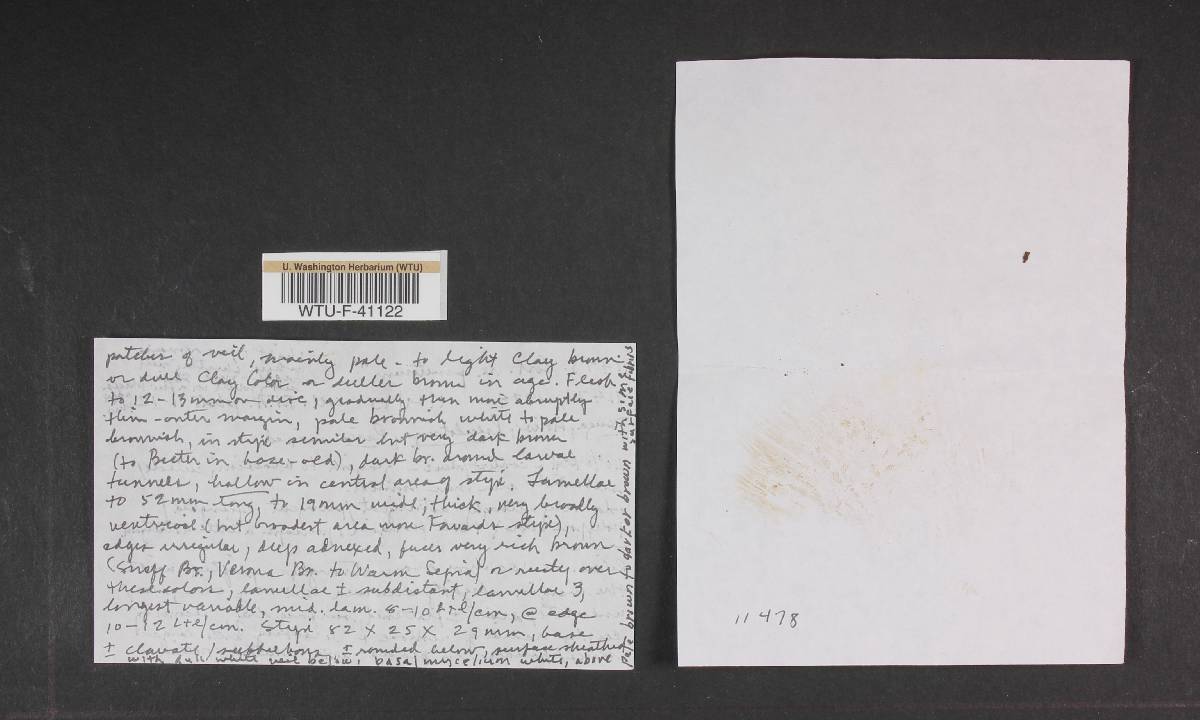 U. Washington Herbarium (WTU)
WTU-F-41122
patches of veil, mainly pale - to light Clay brown
or dull Clay Color or duller brown in age. Flesh
to 12-13mm on disc, gradually then more abruptly
thin - outer margin, pale brownish white to pale
brownish, in stipe similar but very dark brown
(to Bister in base - old), dark br. around larval
tunnels, hollow in central area of stipe. Lamellae
to 52mm long, to 19mm wide; thick, very broadly
ventricose (but broadest area more towards stipe),
edges irregular, deep adnexed, faces very rich brown
(Snuff Br., Verona Br. to Warm Sepia) or rusty over
these colors, lamellae ± subdistant, lamellulae 3,
longest variable, mid. lam. 8-10 L+l/cm, @ edge
10-12 L+l/cm. Stipe 82 X 25 X 29mm, base
± clavate / subbulbous ± rounded below, surface sheathed
with dull white veil below, basal mycelium white, above
pale brown to darker brown with
surface fibrils
11478